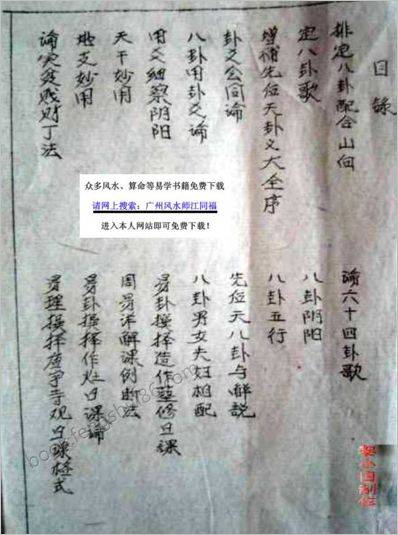 目録
排定八卦配合山向
定八卦歌
增補先后天卦义大全序
卦爻合同論
八卦用卦爻論
用爻細察阴阳
天干妙用
地支妙用
論贫贱财丁法
論六十四卦歌
八卦阴阳
八卦五行
先后天八卦与解説
八卦男女夫妇相配
易卦揀择造作塟修日课
周易详解课例断法
易卦揀择作灶日课論
易理揀择庵宇寺观日课格式
众多风水、算命等易学书籍免费下载
请网上搜索：广州风水师江同福
进入本人网站即可免费下载！